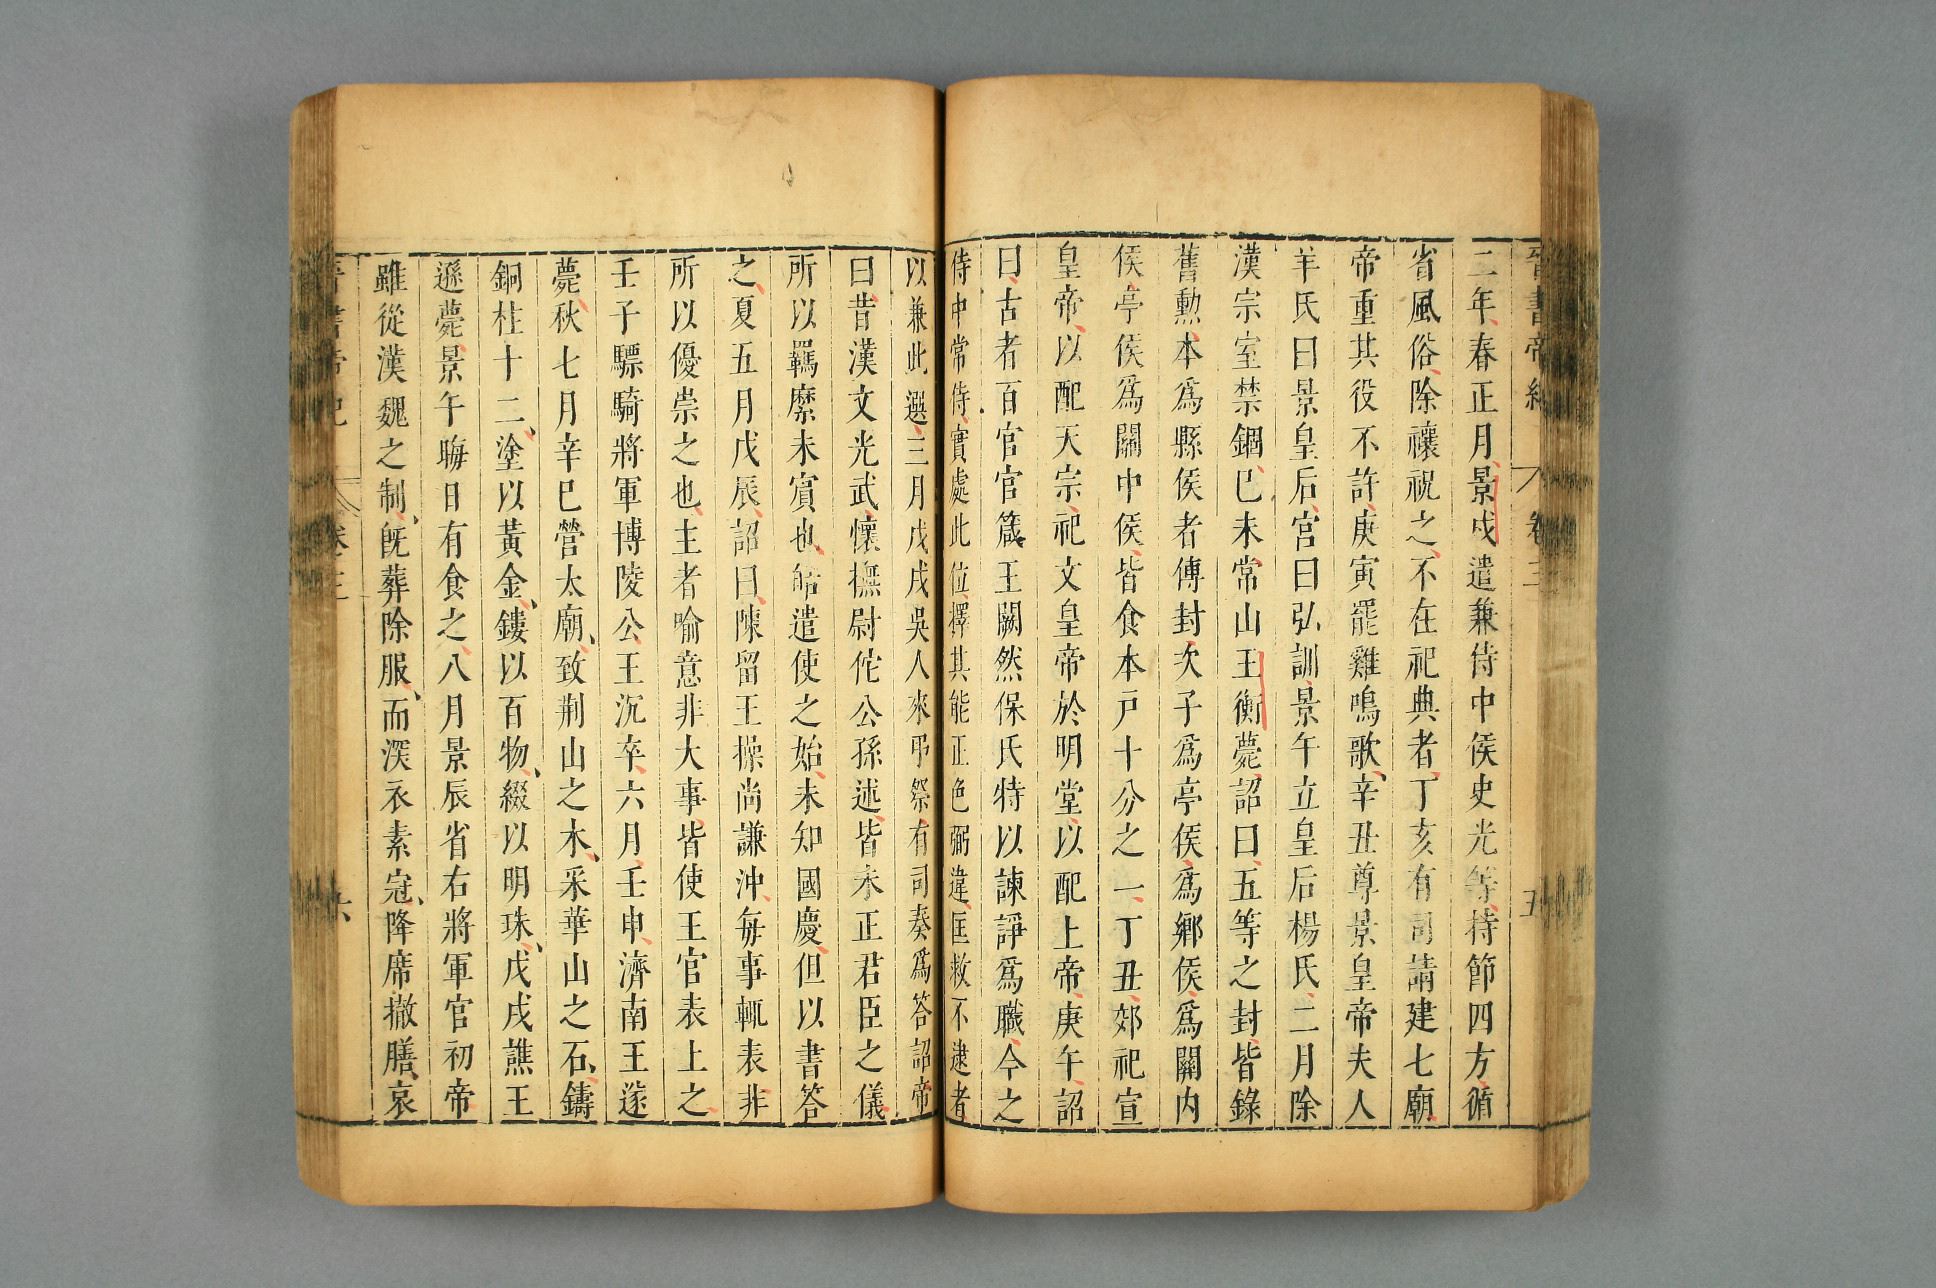 晉書帝紀 卷三 五
二年春正月景戌遣兼侍中侯史光等持節四方循
省風俗除禳祝之不在祀典者丁亥有司請建七廟
帝重其役不許庚寅罷雞鳴歌辛丑尊景皇帝夫人
羊氏曰景皇后宮曰弘訓景午立皇后楊氏二月除
漢宗室禁錮巳未常山王衡薨詔曰五等之封皆錄
舊勲本爲縣侯者傳封次子爲亭侯爲鄉侯爲關內
侯亭侯爲關中侯皆食本戸十分之一丁丑郊祀宣
皇帝以配天宗祀文皇帝於明堂以配上帝庚午詔
曰古者百官官箴王闕然保氏特以諫諍爲職今之
侍中常侍實處此位擇其能正色弼違匡救不逮者
以兼此選三月戊戌吳人來弔祭有司奏爲答詔帝
曰昔漢文光武懷撫尉佗公孫述皆未正君臣之儀
所以羈縻未賔也皓遣使之始未知國慶但以書答
之夏五月戊辰詔曰陳留王操尚謙沖毎事輒表非
所以優崇之也主者喻意非大事皆使王官表上之
壬子驃騎將軍博陵公王沉卒六月壬申濟南王遂
薨秋七月辛巳營太廟致荆山之木采華山之石鑄
銅柱十二塗以黃金鏤以百物綴以明珠戊戌譙王
遜薨景午晦日有食之八月景辰省右將軍官初帝
雖從漢魏之制旣葬除服而深衣素冠降席撤膳哀
晉書帝紀 卷三 六